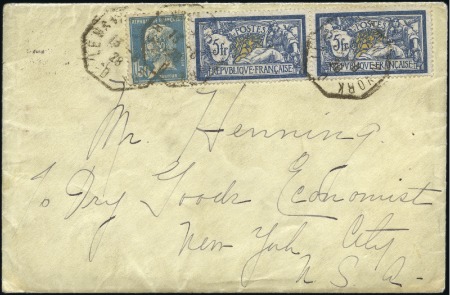 POSTES
5fr
REPUBLIQUE FRANÇAISE
POSTES
5fr
REPUBLIQUE FRANÇAISE
1,50
LE HAVRE
YORK
Mr. Henning.
℅ Dry Goods Economist
New York City
U.S.A.